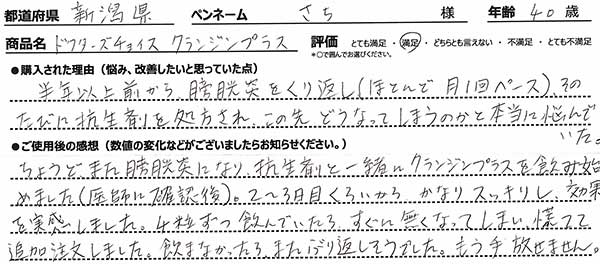 都道府県 新潟県 ペンネーム さち 様 年齢 40 歳
商品名 ドクターズチョイス クランジンプラス 評価 とても満足 ・ 満足 ・ どちらとも言えない ・ 不満足 ・ とても不満足
*○で囲んでお選びください。
●購入された理由（悩み、改善したいと思っていた点）
半年以上前から、膀胱炎をくり返し（ほとんど月1回ペース）、その
たびに抗生剤を処方され、この先どうなってしまうのかと本当に悩んで
いた。
●ご使用後の感想（数値の変化などがございましたらお知らせください。）
ちょうどまた膀胱炎になり、抗生剤と一緒にクランジンプラスを飲み始
めました（医師に確認後）。2〜3日目くらいから かなりスッキリし、効果
を実感しました。4粒ずつ飲んでいたら、すぐに無くなってしまい、慌てて
追加注文しました。飲まなかったら、またぶり返しそうでした。もう手放せません。